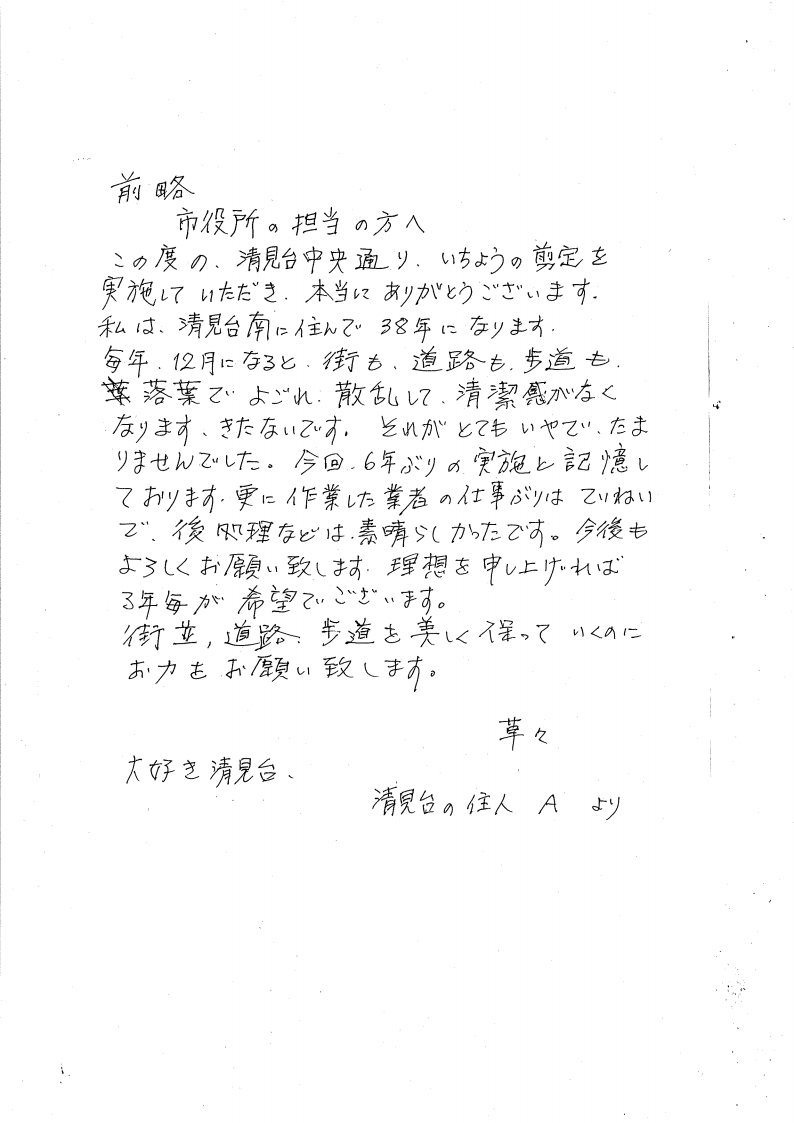 前略
市役所の担当の方へ
この度の、清見台中央通り、いちょうの剪定を
実施していただき、本当にありがとうございます。
私は、清見台南に住んで38年になります。
毎年、12月になると、街も、道路も、歩道も、
落葉でよごれ、散乱して、清潔感がなく
なります、きたないです。それがとてもいやで、たま
りませんでした。今回、6年ぶりの実施と記憶し
ております。更に作業した業者の仕事ぶりはていねい
で、後処理などは、素晴らしかったです。今後も
よろしくお願い致します。理想を申し上げれば
3年毎が希望でございます。
街並,道路、歩道を美しく保っていくのに
お力をお願い致します。
草々
大好き清見台、
清見台の住人 A より